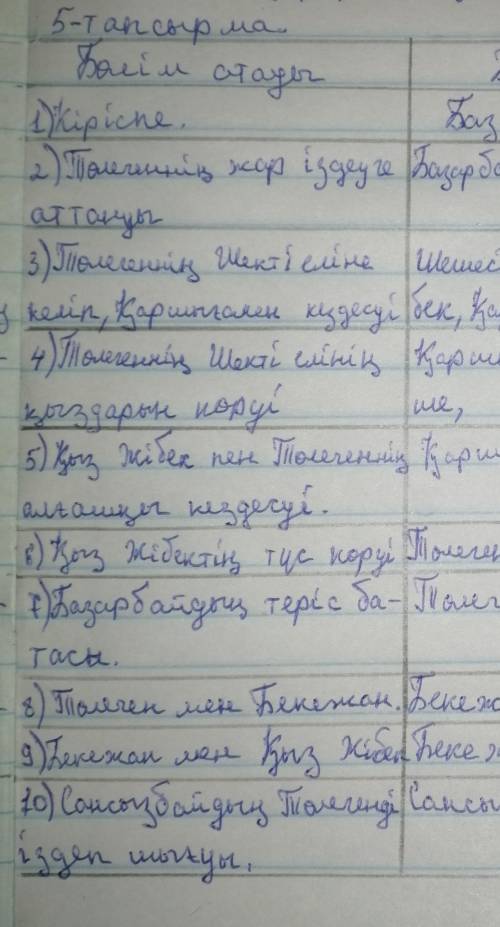 5-тапсырма.
Бөлім атауы
1) Кіріспе. Баз
2) Төлегеннің жар іздеуге Базарба
аттануы
3) Төлегеннің Шекті еліне Шешес
келіп, Қаршығамен кездесуі бек, Қа
4) Төлегеннің Шекті елінің Қарши
қыздарын көруі ше,
5) Қыз Жібек пен Төлегеннің Қарш
алғашқы кездесуі.
6) Қыз Жібектің түс көруі Төлеген
7) Базарбайдың теріс ба- Төлег
тасы.
8) Төлеген мен Бекежан. Бекежа
9) Бекежан мен Қыз Жібек Бекеж
10) Сансызбайдың Төлегенді Сансы
іздеп шығуы.